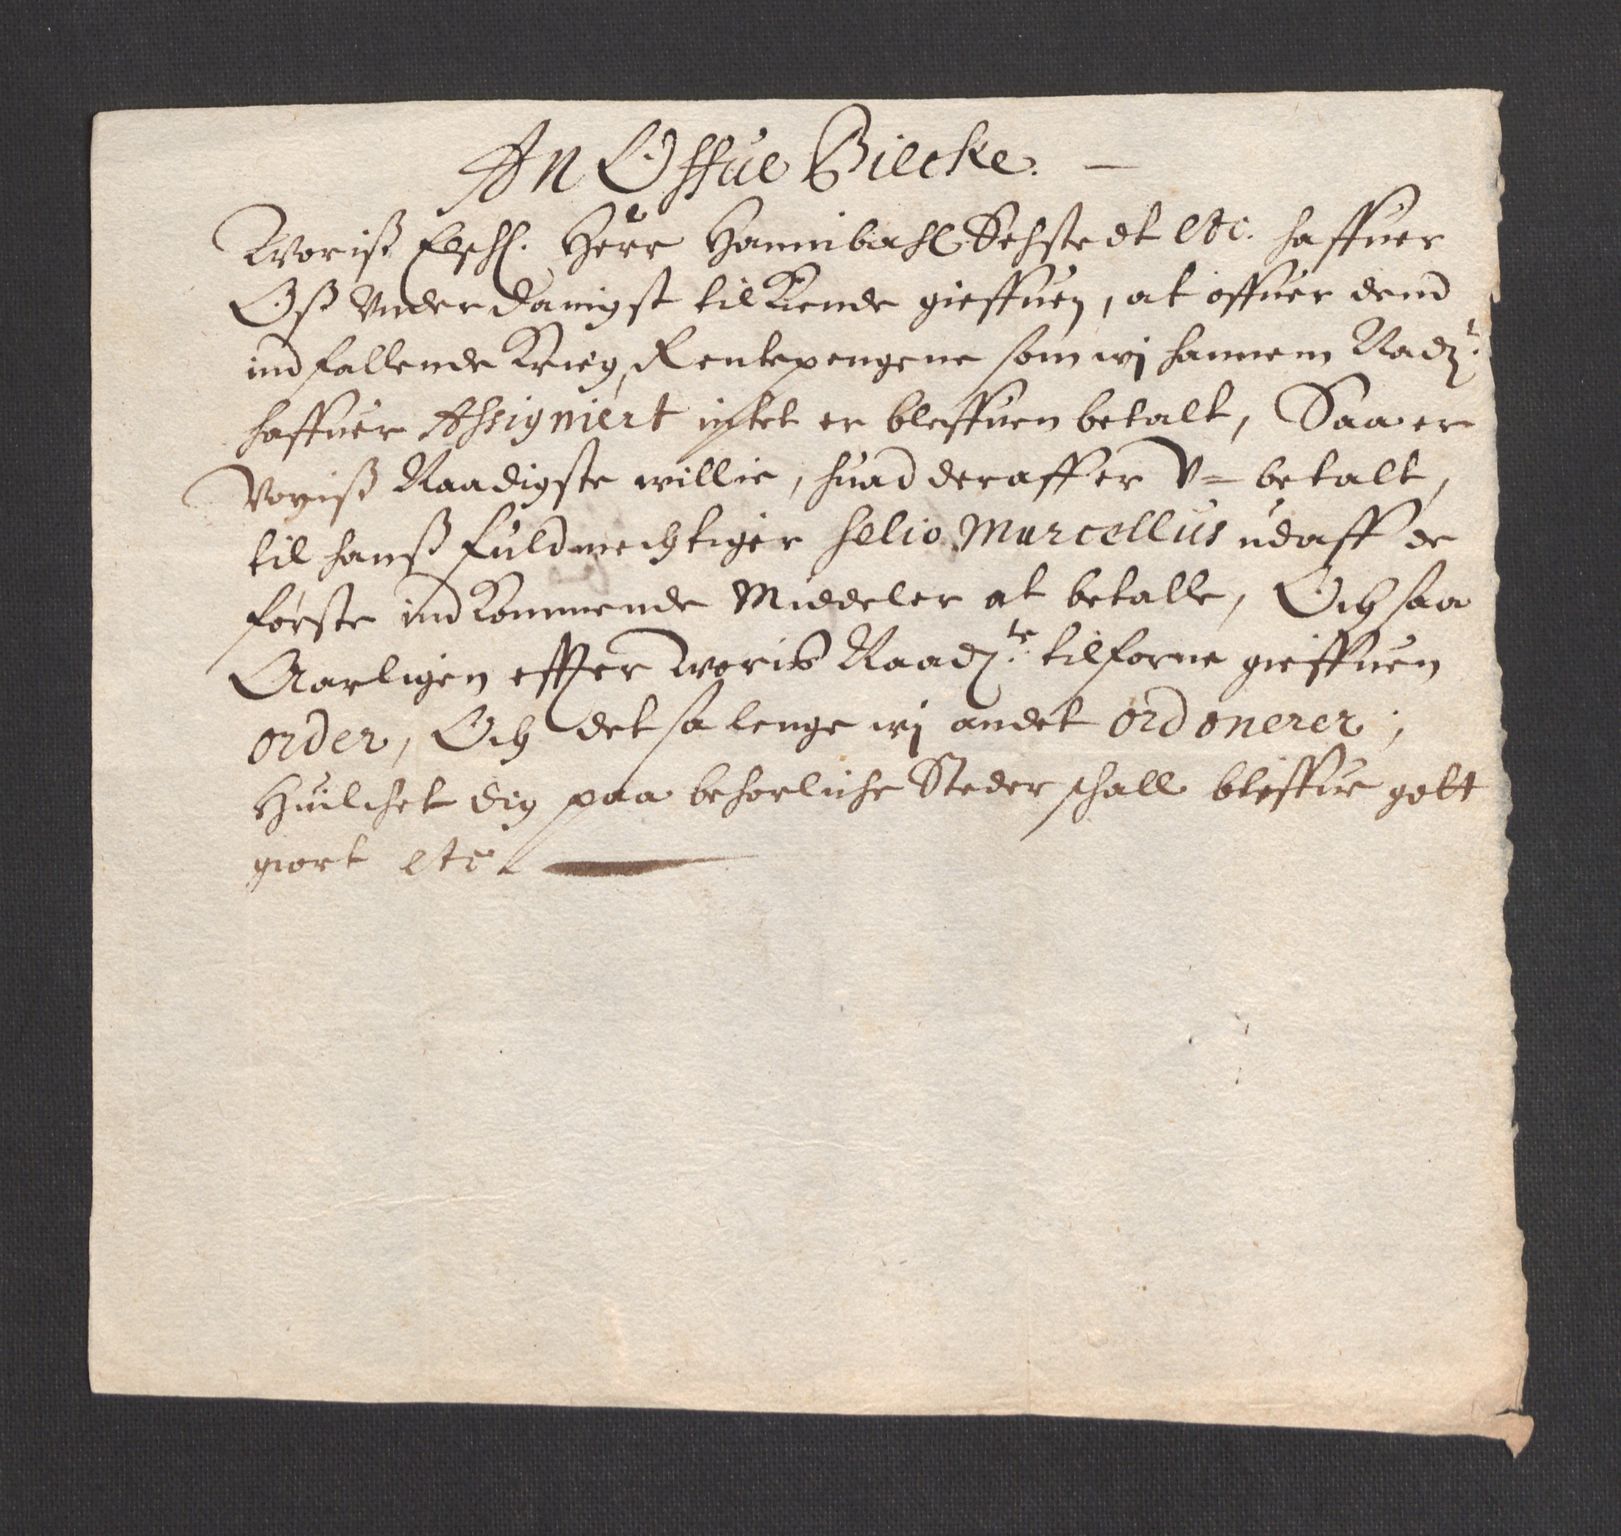 An Offue Bielcke. —
Woriß Elschl. Herr Hannibahl Sehstedt etc. haffuer
Oß Vnderdanigst tilkiende gieffuen, at offuer dend
indfallende Krieg, Rentepengene som wj hannem Naadt.
haffuer Assigniert intet er bleffuen betalt, Saa er
Voriß Naadigste willie, huad deraff er V= betalt,
til hanß fuldmechtiger Selio Marcellus udaff de
første indkommende Middeler at betalle, Och saa
Aarligen effter Woriß Naadste. tilforne gieffuen
order, Och det sa lenge wj andet ordonerer;
Huilchet dig paa behorliche Steder schall bleffue gott
giort etc.